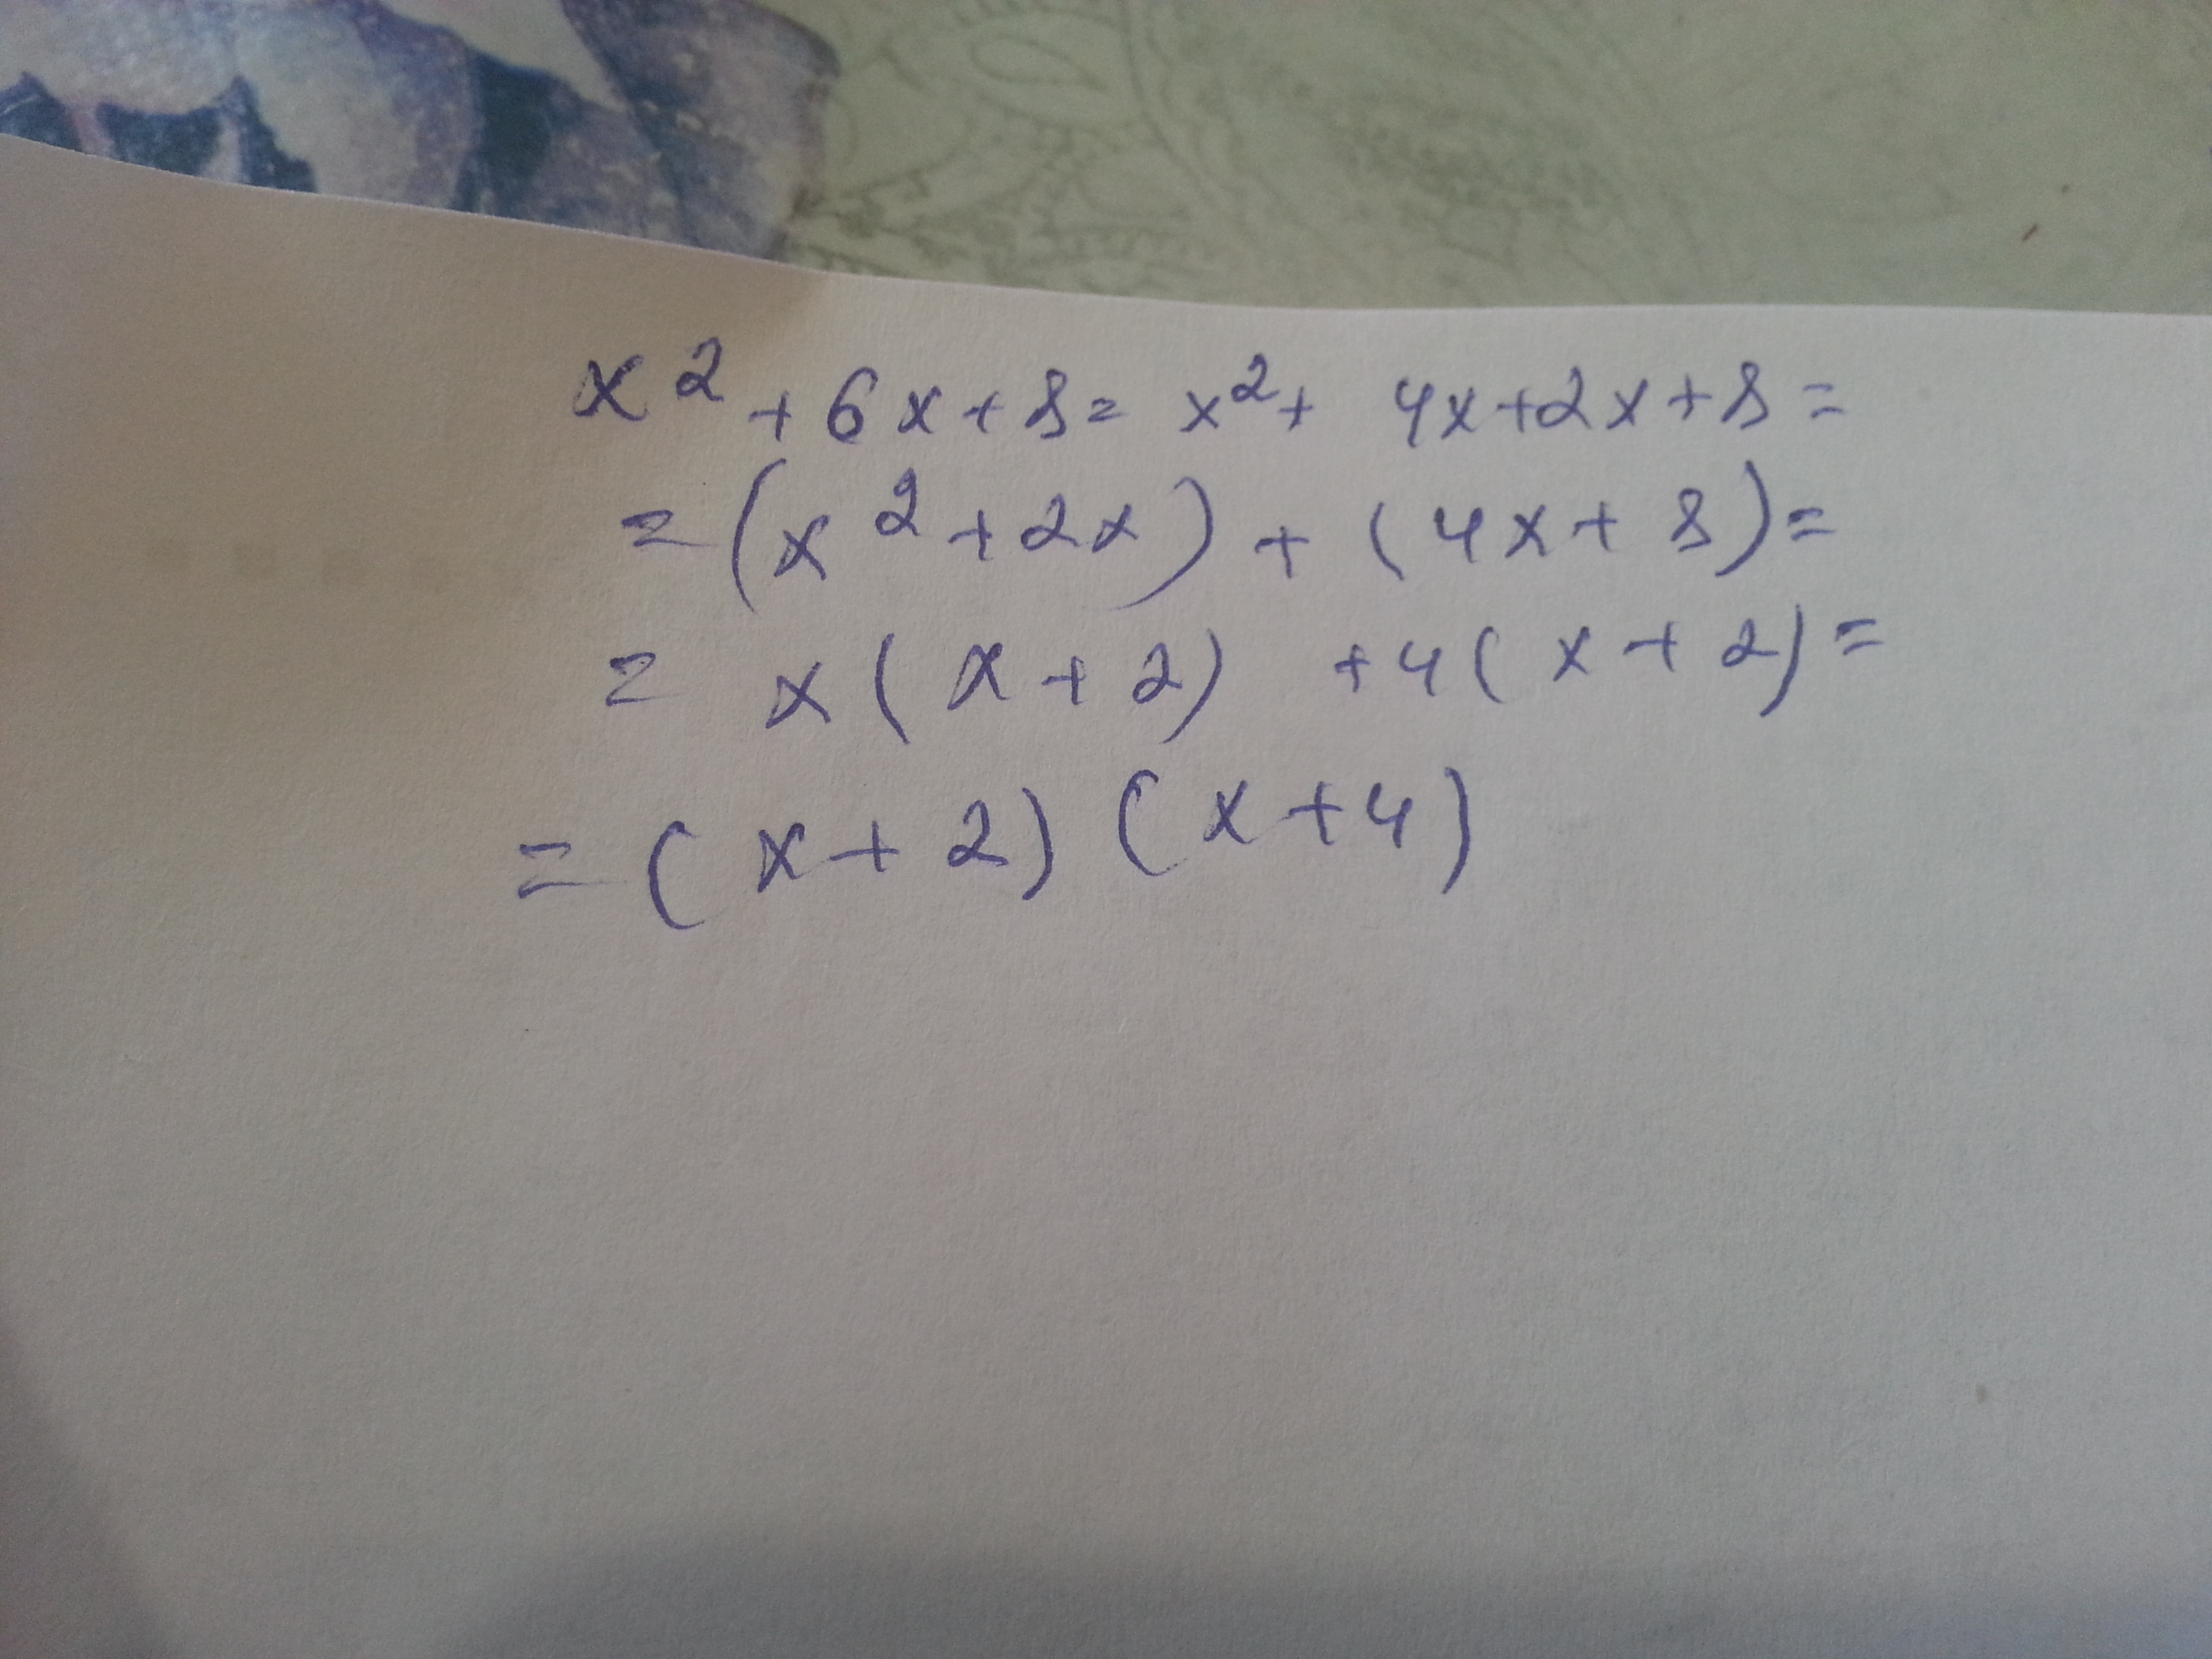 x² + 6x + 8 = x² + 4x + 2x + 8 =
= (x² + 2x) + (4x + 8) =
= x(x + 2) + 4(x + 2) =
= (x + 2)(x + 4)